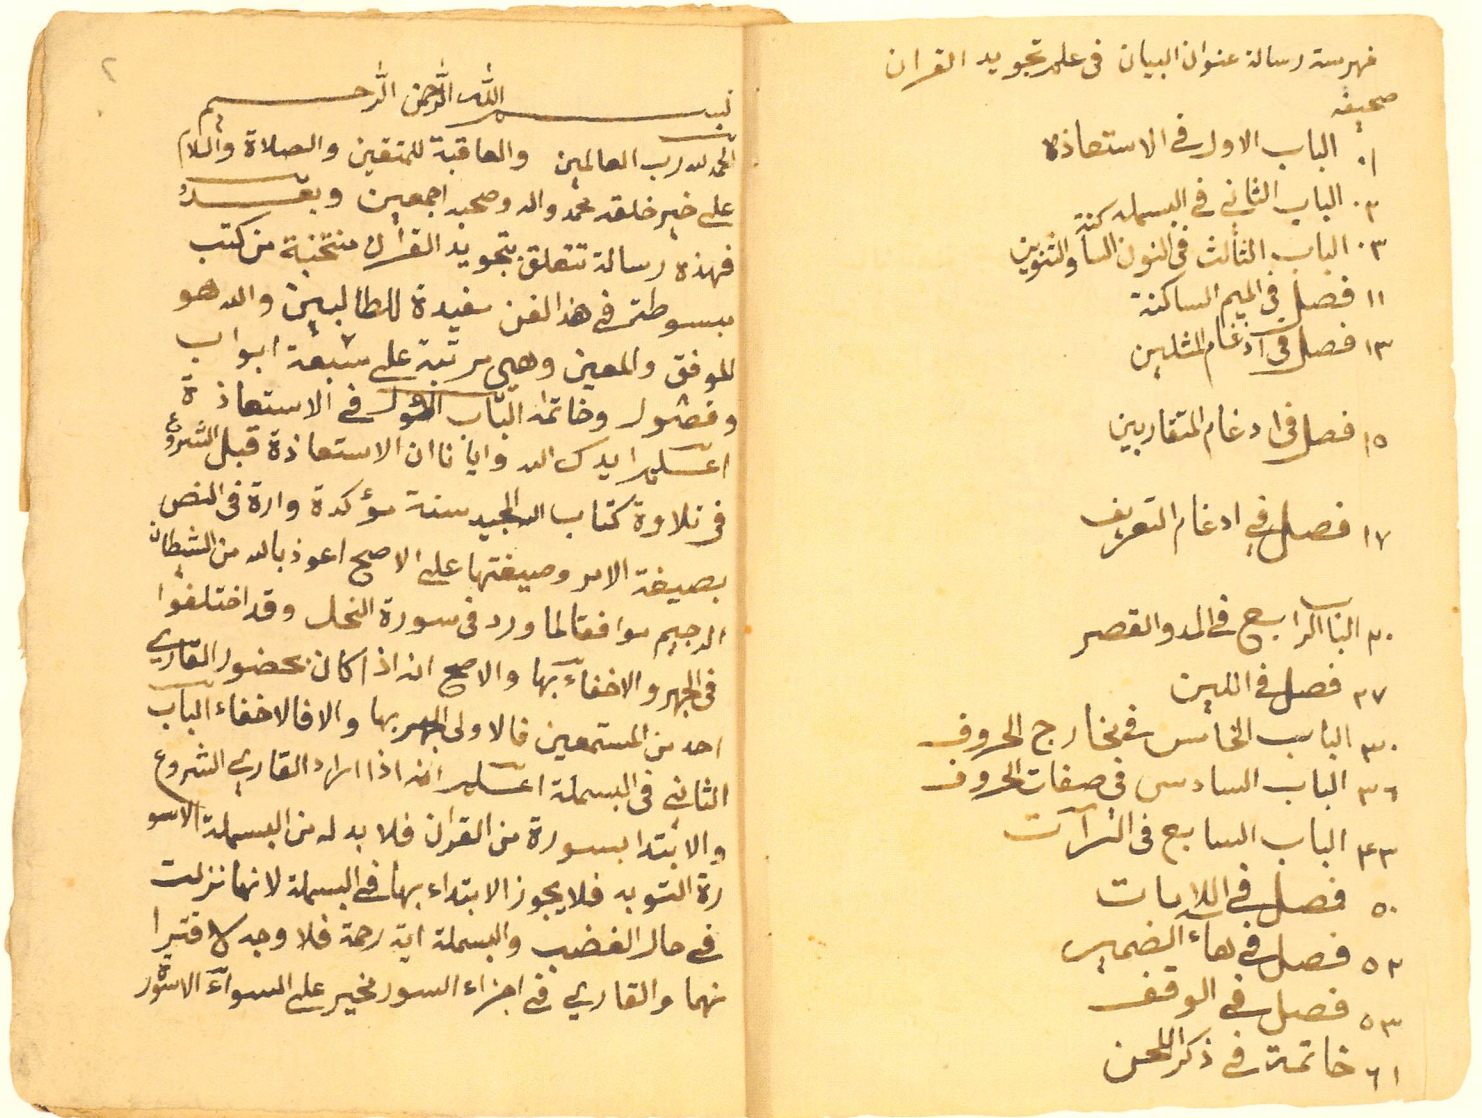 فهرسة رسالة عنوان البيان فى علم تجويد القران
صحيفه
٠١ الباب الاول فى الاستعاذه
٠٣ الباب الثانى فى البسمله
٠٣ الباب الثالث فى النون الساكنة والتنوين
١١ فصل فى الميم الساكنة
١٣ فصل فى ادغام المثلين
١٥ فصل فى ادغام المتقاربين
١٧ فصل فى ادغام التعريف
٢٠ الباب الرابع فى المد والقصر
٢٧ فصل فى اللين
٣٠ الباب الخامس فى مخارج الحروف
٣٦ الباب السادس فى صفات الحروف
٤٣ الباب السابع فى الراآت
٥٠ فصل فى اللامات
٥٢ فصل فى هاء الضمير
٥٣ فصل فى الوقف
٦١ خاتمة فى ذكر اللحن
٢
بسم الله الرحمن الرحيم
الحمد لله رب العالمين والعاقبة للمتقين والصلاة والسلام
على خير خلقه محمد واله وصحبه اجمعين وبعد
فهذه رسالة تتعلق بتجويد القرأن منتخبة من كتب
مبسوطة فى هذا الفن مفيدة للطالبين والله هو
الموفق والمعين وهي مرتبة على سبعة ابواب
وفصول وخاتمة الباب الاول فى الاستعاذة
اعلم ايدك الله وايانا ان الاستعاذة قبل الشروع
فى تلاوة كتاب الله المجيد سنة مؤكدة واردة فى النص
بصيغة الامر وصيغتها على الاصح اعوذ بالله من الشيطان
الرجيم موافقا لما ورد فى سورة النحل وقد اختلفوا
فى الجهر والاخفاء بها والاصح انه اذا كان بحضور القارى
احد من المستمعين فالاولى الجهر بها والا فالاخفاء الباب
الثانى فى البسملة اعلم انه اذا اراد القارى الشروع
والابتدا بسورة من القران فلا بد له من البسملة الا سو
رة التوبه فلا يجوز الابتداء بها فى البسملة لانها نزلت
فى حال الغضب والبسملة اية رحمة فلا وجه لاقترا
نهما والقارى فى اجزاء السور مخير على السوآء الا سورة